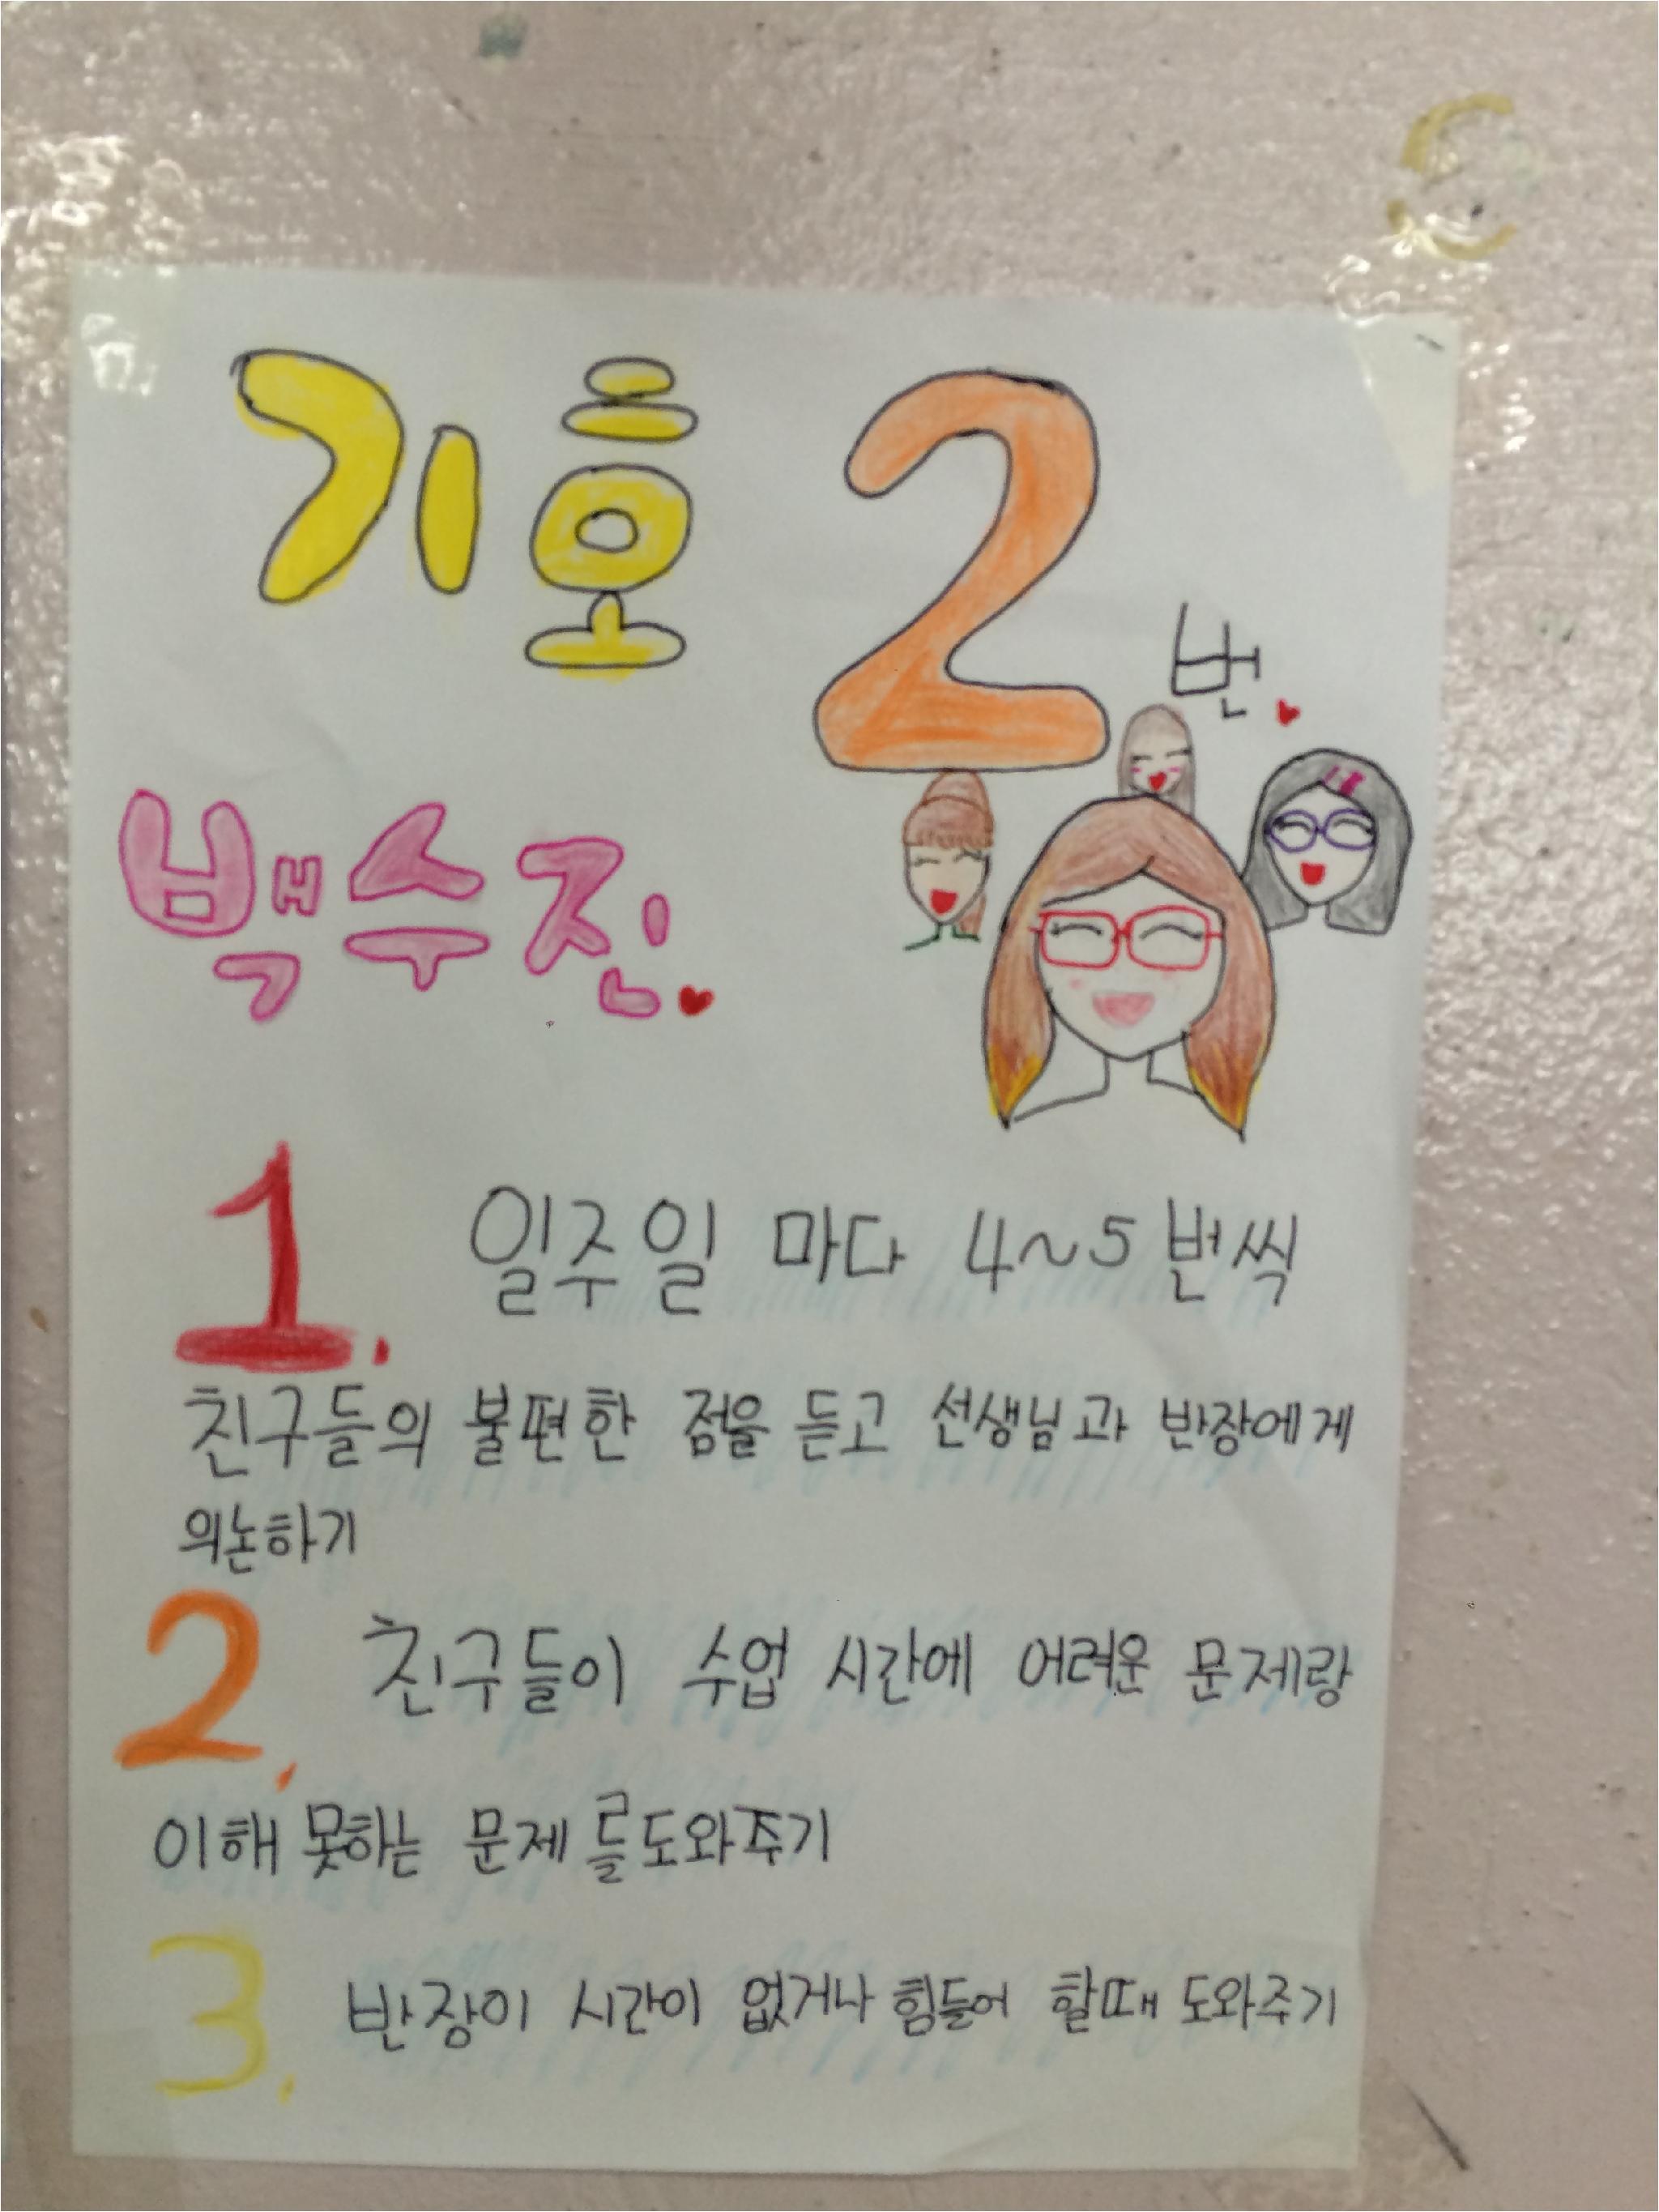 기호 2
번
백수진
1. 일주일 마다 4~5번씩
친구들의 불편한 점을 듣고 선생님과 반장에게
의논하기
2. 친구들이 수업 시간에 어려운 문제랑
이해 못하는 문제 를도와주기
3. 반장이 시간이 없거나 힘들어 할때 도와주기